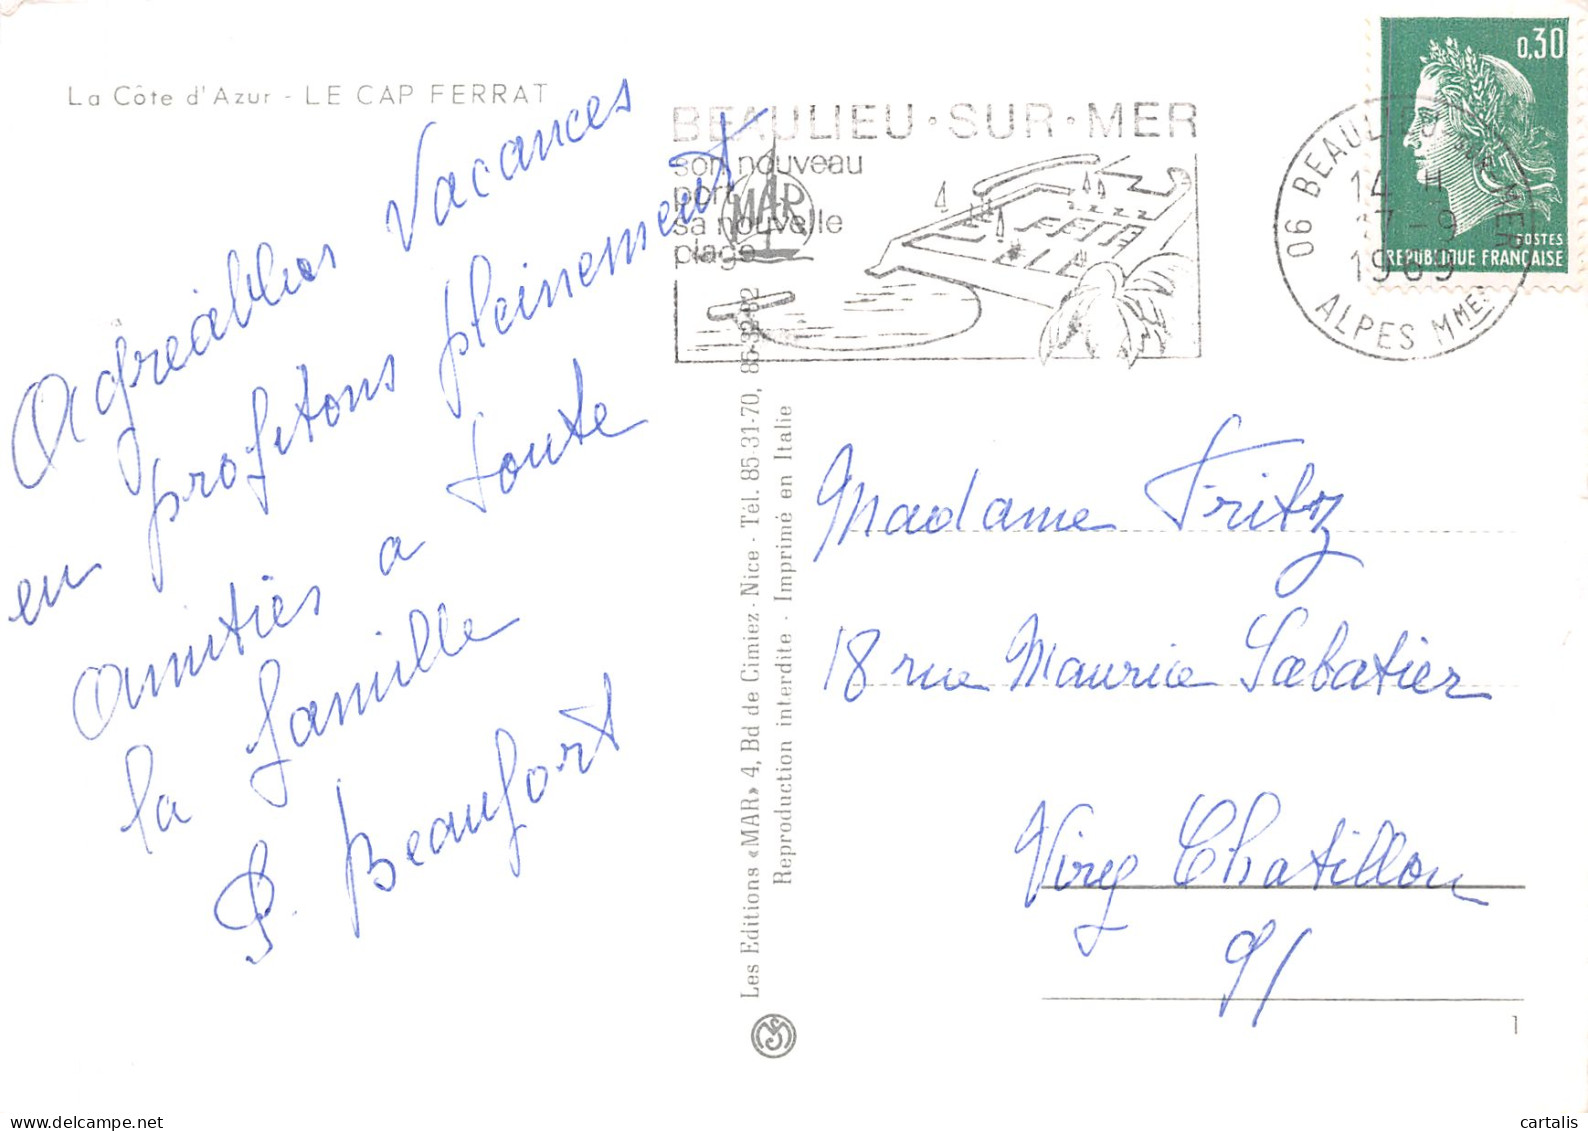 La Côte d'Azur - LE CAP FERRAT
Agréables Vacances
en profitons pleinement
amitiés a toute
la famille
P. Beaufort
BEAULIEU • SUR • MER
son nouveau
port
sa nouvelle
plage
MAR
0,30
POSTES
REPUBLIQUE FRANÇAISE
06 BEAULIEU SUR MER
14 H
17-9
1969
ALPES MMES
Les Editions «MAR» 4, Bd de Cimiez - Nice - Tél. 85-31-70, 85-32-02
Reproduction interdite - Imprimé en Italie
Madame Fritz
18 rue Maurice Sabatier
Virey Chatillon
91
1
cartalis
www.delcampe.net